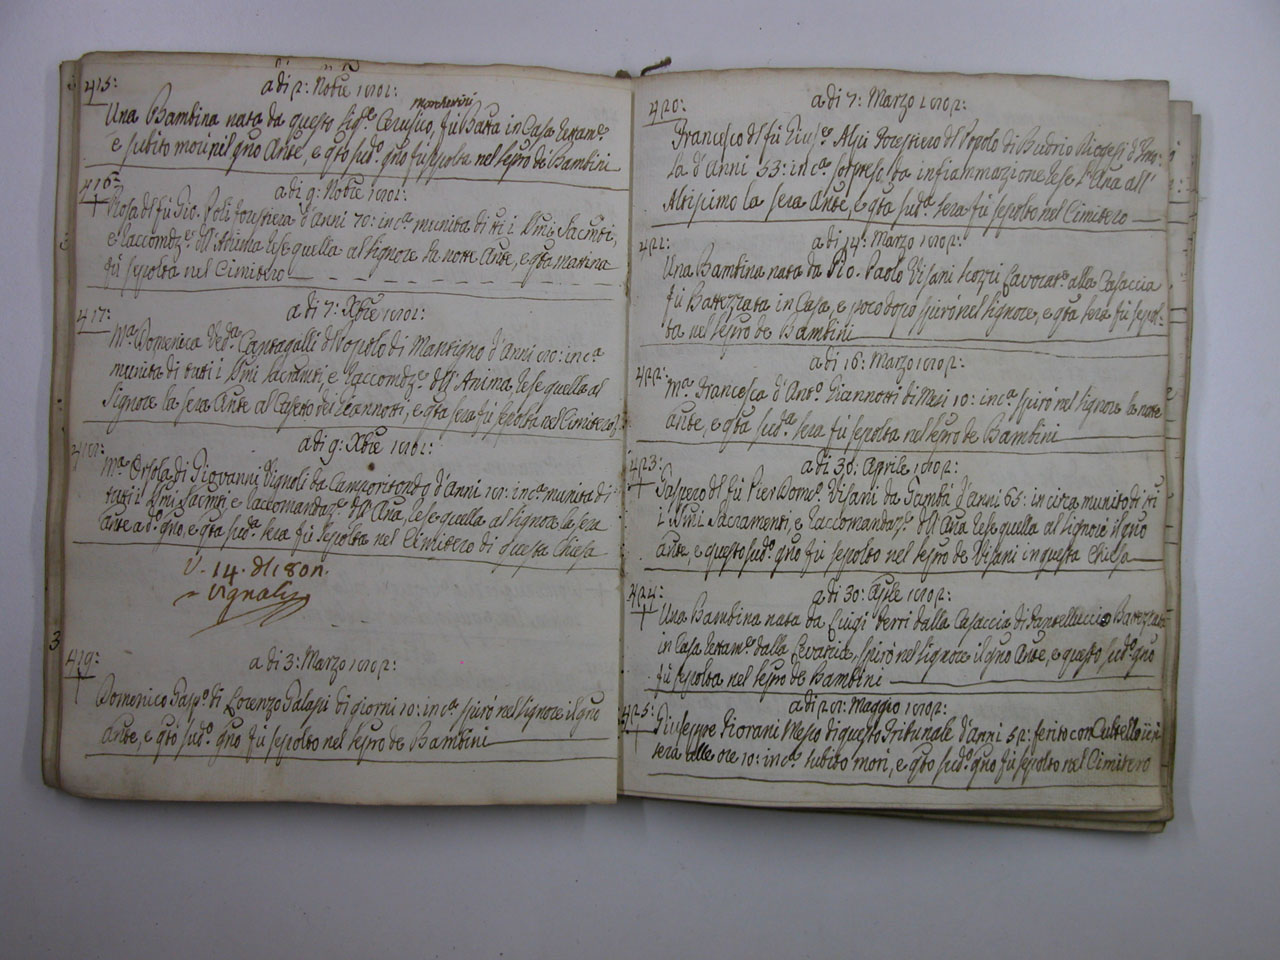 415:
a di 2: Nobre 1801:
Una Bambina nata da questo Sig.e Cerusico, fù Batta in Casa
e subito morì nel gno Ante, e qto sud.o gno fù sepolta nel sepro de Bambini
416:
a di 9: Nobre 1801:
Rosa del fù Gio. Poli forestiera d'Anni 70: inc.a munita di tti i SSmi Sacmti,
e Raccomdz.e dell'Anima rese quella al Signore la notte Ante, e qta mattina
fù sepolta nel Cimitero
417:
a di 7: Xbre 1801:
M.a Domenica Ved.a Cantagalli del Popolo di Mantigno d'Anni 80: inc.a
munita di tutti i SSmi Sacramti, e Raccomdz.e dell'Anima rese quella al
Signore la sera Ante al Casetto dei Gianotti, e qta sera fù sepolta nel Cimitero
418:
a di 9: Xbre 1801:
M.a Orsola di Giovanni Vignoli da Camporitondo d'Anni 18: inc.a munita di
tutti i SSmi Sacmti, e Raccomandaz.e dell'Ana, rese quella al Signore la sera
Ante a d.o gno, e qta sud.a sera fù sepolta nel Cimitero di questa Chiesa
V. 14. 1801.
Vignali
419:
a di 3: Marzo 1802:
Domenico Gasp.o di Lorenzo Galassi di giorni 10: inc.a spirò nel Signore il gno
Ante, e qto sud.o gno fù sepolto nel sepro de Bambini
420:
a di 7: Marzo 1802:
Francesco del fù Gius.e Alpi forestiero del Popolo di Budrio Diocesi d'Imo:
la d'Anni 53: inc.a sorpreso da infiammazione rese l'Ana all'
Altissimo la sera Ante, e qta sud.a sera fù sepolto nel Cimitero
421:
a di 14: Marzo 1802:
Una Bambina nata da Pio. Paolo Visani Lavorat.e alla Casaccia
fù Battezzata in Casa, e poco dopo spirò nel Signore, e qta sera fù sepol:
ta nel sepro de Bambini
a di 16: Marzo 1802:
422:
M.a Francesca d'Ant.o Giannotti di Mesi 10: inc.a spirò nel Signore la notte
Ante, e qta sud.a sera fù sepolta nel sepro de Bambini
423:
a di 30: Aprile 1802:
Gaspero del fù Pier Dom.o Visani da Gamba d'Anni 65: in circa munito di tti
i SSmi Sacramenti, e Raccomandaz.e dell'Ana rese quella al Signore il gno
Ante, e questo sud.o gno fù sepolto nel sepro de Visani in questa Chiesa
424:
a di 30: Aprle 1802:
Una Bambina nata da Luigi Ferri dalla Casaccia di Battezzata
in Casa dalla Levatrice, spirò nel Signore il gno Ante, e questo sud.o gno
fù sepolta nel sepro de Bambini
a di 28: Maggio 1802:
425:
Giuseppe Fiorani Messo di questo Tribunale d'Anni 52: ferito con Cultello
sera alle ore 10: inc.a subito morì, e qto sud.o gno fù sepolto nel Cimitero